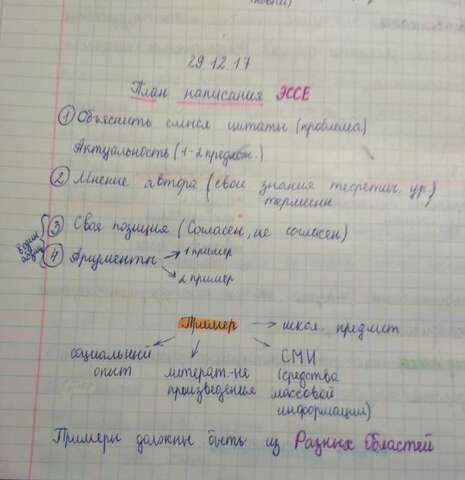 29.12.17
План написания ЭССЕ
① Объяснить смысл цитаты (проблема)
Актуальность (1-2 предлож.)
② Мнение автора (свои знания теоретич. ур.)
термины
③ Своя позиция (Согласен, не согласен)
④ Аргументы → 1 пример
→ 2 пример
Пример → школ. предмет
социальный опыт
литерат-ые произведения
СМИ (средства массовой информации)
Примеры должны быть из Разных Областей